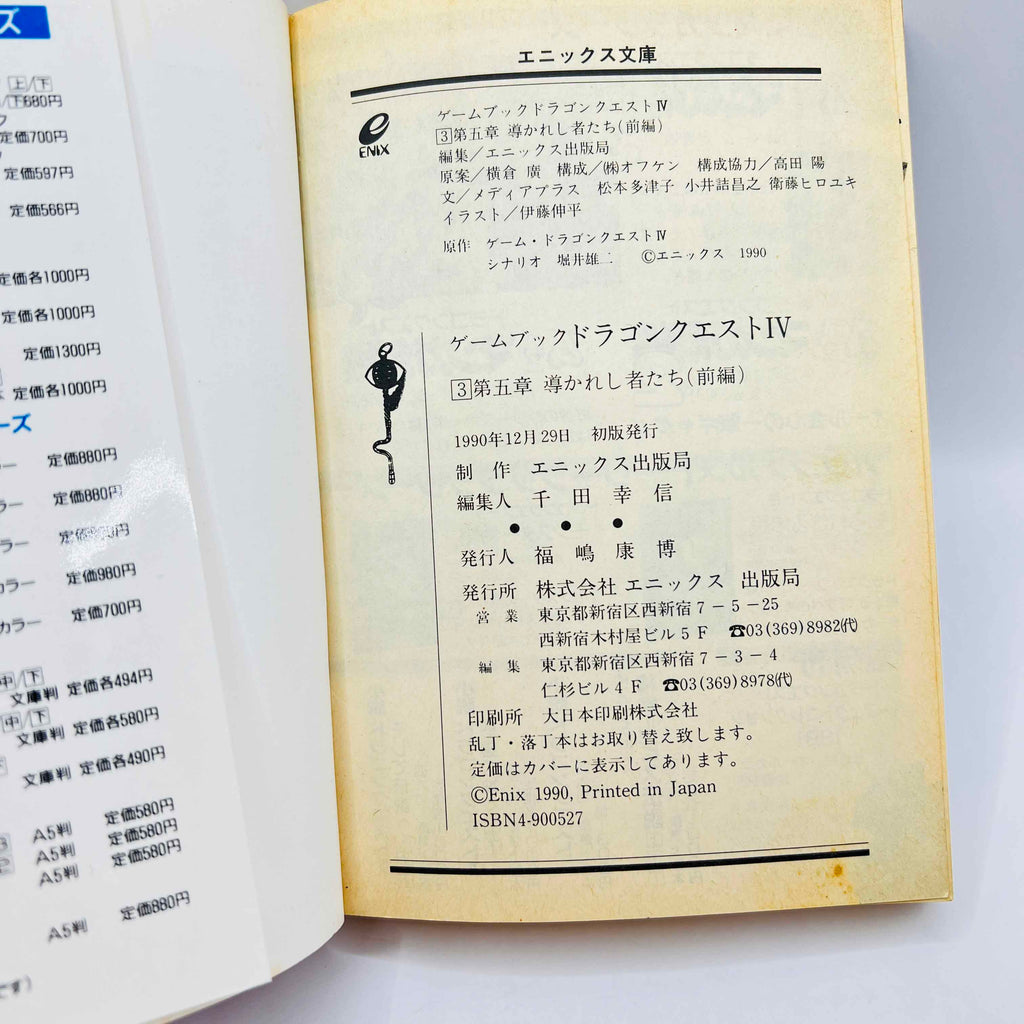 ズ
上/下
下680円
定価700円
定価597円
定価566円
定価各1000円
定価各1000円
定価1300円
定価各1000円
ーズ
ラー 定価880円
ラー 定価880円
カラー
カラー 定価980円
カラー 定価700円
中/下
文庫判 定価各494円
中/下
文庫判 定価各580円
文庫判 定価各490円
定価580円
A5判 定価580円
A5判 定価580円
A5判
定価880円
A5判
です)
エニックス文庫
ENIX
ゲームブックドラゴンクエストⅣ
3第五章 導かれし者たち(前編)
編集/エニックス出版局
原案/横倉 廣 構成/㈱オフケン 構成協力/高田 陽
文/メディアプラス 松本多津子 小井詰昌之 衛藤ヒロユキ
イラスト/伊藤伸平
原作 ゲーム・ドラゴンクエストⅣ
シナリオ 堀井雄二 ©エニックス 1990
ゲームブックドラゴンクエストⅣ
3第五章 導かれし者たち(前編)
1990年12月29日 初版発行
制作 エニックス出版局
編集人 千田幸信
● ● ●
発行人 福嶋康博
発行所 株式会社 エニックス 出版局
営業 東京都新宿区西新宿7-5-25
西新宿木村屋ビル5F ☎03(369)8982㈹
編集 東京都新宿区西新宿7-3-4
仁杉ビル4F ☎03(369)8978㈹
印刷所 大日本印刷株式会社
乱丁・落丁本はお取り替え致します。
定価はカバーに表示してあります。
©Enix 1990, Printed in Japan
ISBN4-900527